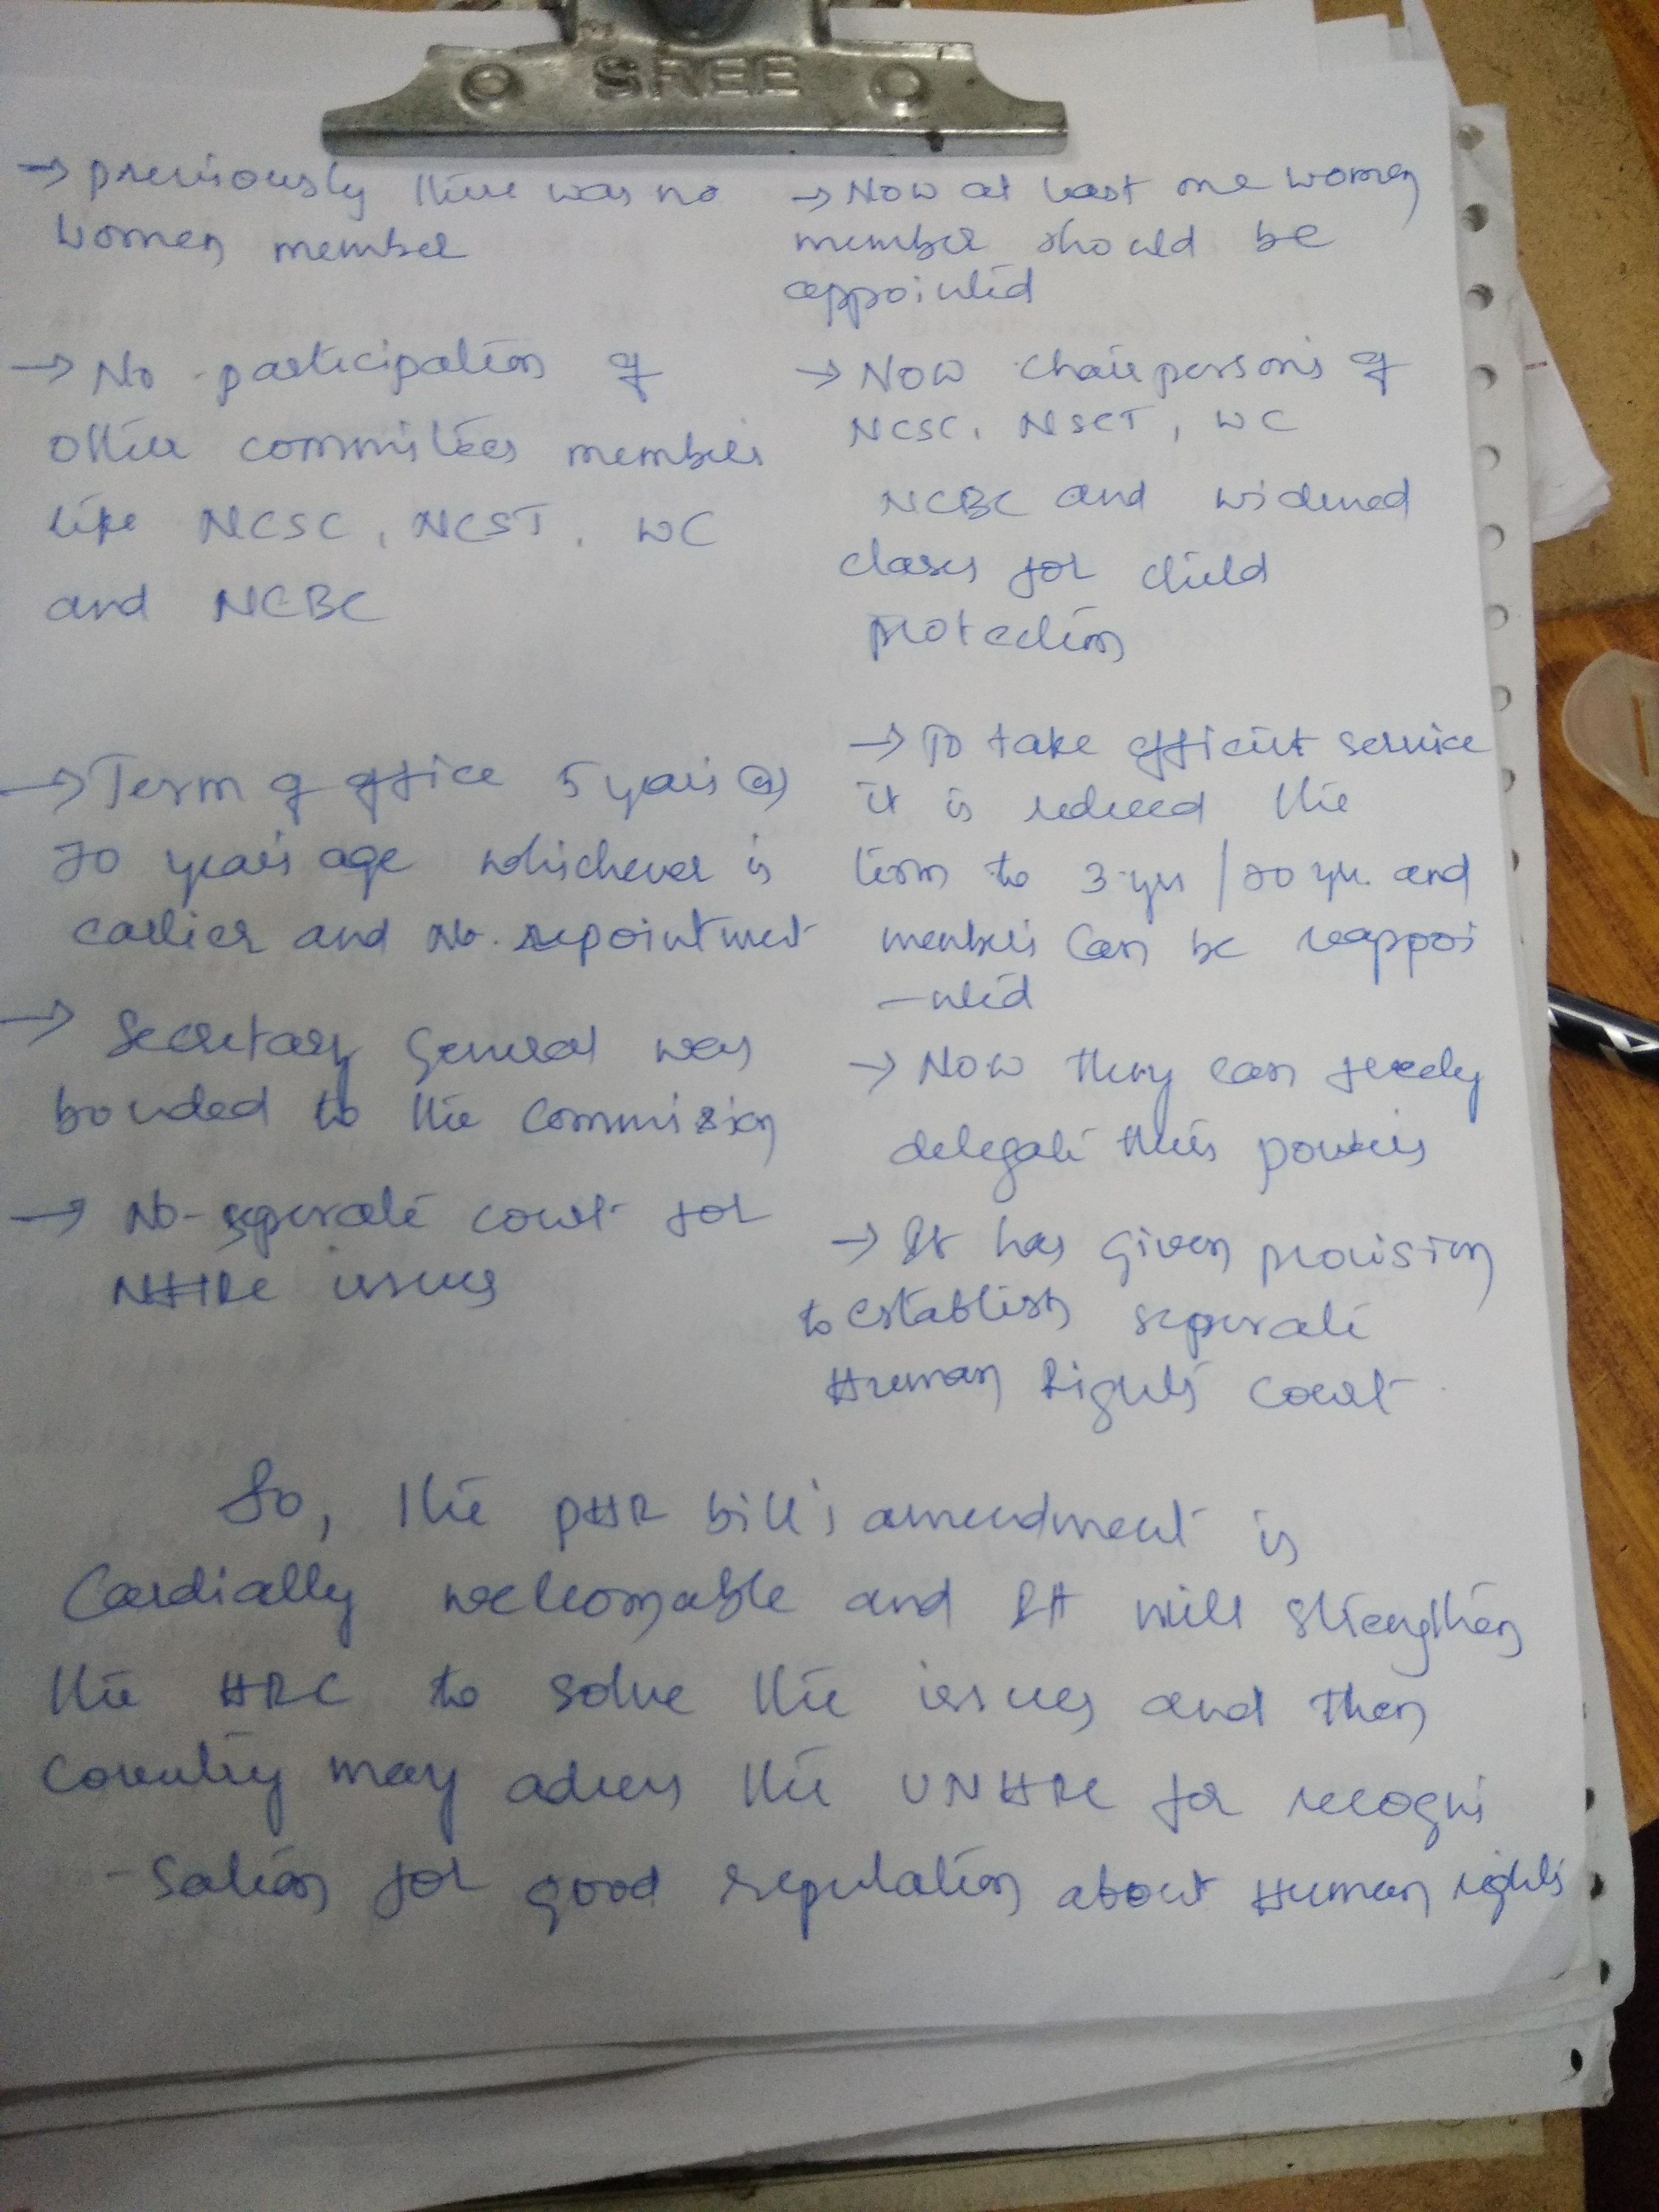 SREE
→ previously there was no
women member
→ No participation of
other committees members
like NCSC, NCST, WC
and NCBC
→ Term of office 5 years (or)
70 years age whichever is
earlier and No. repointment
→ Secretary General was
bonded to the Commission
→ No-seperate court for
NHRC issues
→ Now at least one women
member should be
appointed
→ Now chairpersons of
NCSC, NSCT, WC
NCBC and widened
clases for child
protection
→ To take efficient service
it is reduced the
term to 3 yrs / 70 yr. and
members Can be reappoi
-nted
→ Now they can freely
delegate their powers
→ It has given provision
to establish seperate
Human Rights court
So, the PHR bill's amendment is
Cardially welcomable and It will strengthen
the HRC to solve the issues and then
country may adress the UNHRC for recogni
-sation for good reputation about Human rights